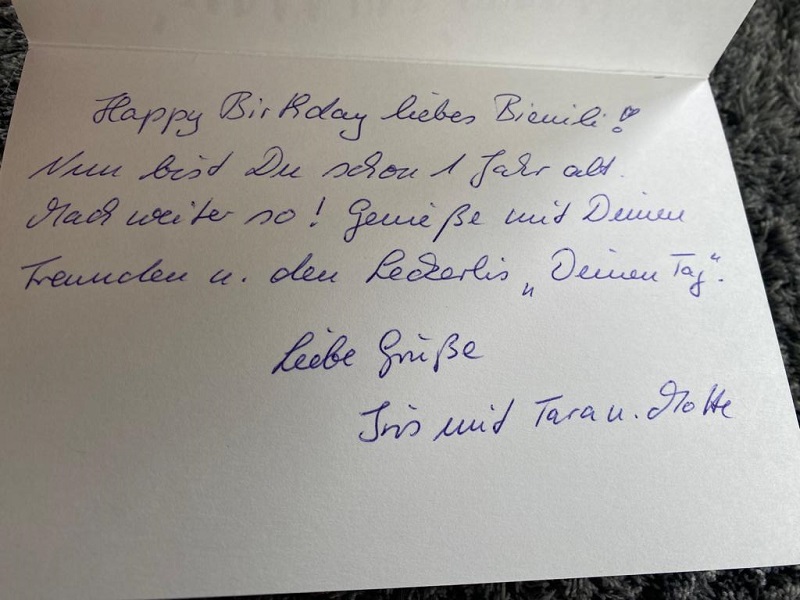 Happy Birthday liebes Bienili!
Nun bist Du schon 1 Jahr alt.
Mach weiter so! Genieße mit Deinen
Freunden u. den Leckerlis „Deinen Tag".
Liebe Grüße
Iris mit Tara u. Motte